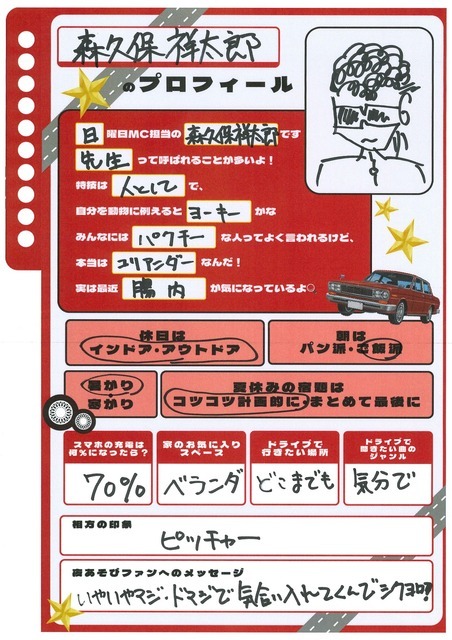 森久保祥太郎
のプロフィール
日 曜日MC担当の 森久保祥太郎 です
先生 って呼ばれることが多いよ!
特技は 人として で、
自分を動物に例えると ヨーキー かな
みんなには パクチー な人ってよく言われるけど、
本当は コリアンダー なんだ!
実は最近 腸内 が気になっているよ。
休日は
インドア・アウトドア
朝は
パン派・ご飯派
暑がり
寒がり
夏休みの宿題は
コツコツ計画的に・まとめて最後に
スマホの充電は
何%になったら?
70%
家のお気に入り
スペース
ベランダ
ドライブで
行きたい場所
どこまでも
ドライブで
聴きたい曲の
ジャンル
気分で
相方の印象
ピッチャー
夜あそびファンへのメッセージ
いやいやマジ・ドマジで気合い入れてくんでシクヨロ!!